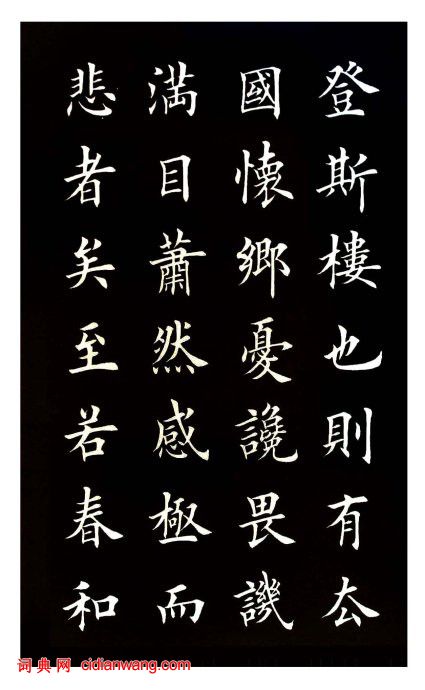 登斯樓也則有厺
國懷鄉憂讒畏譏
滿目蕭然感極而
悲者矣至若春和
词典网 cidianwang.com